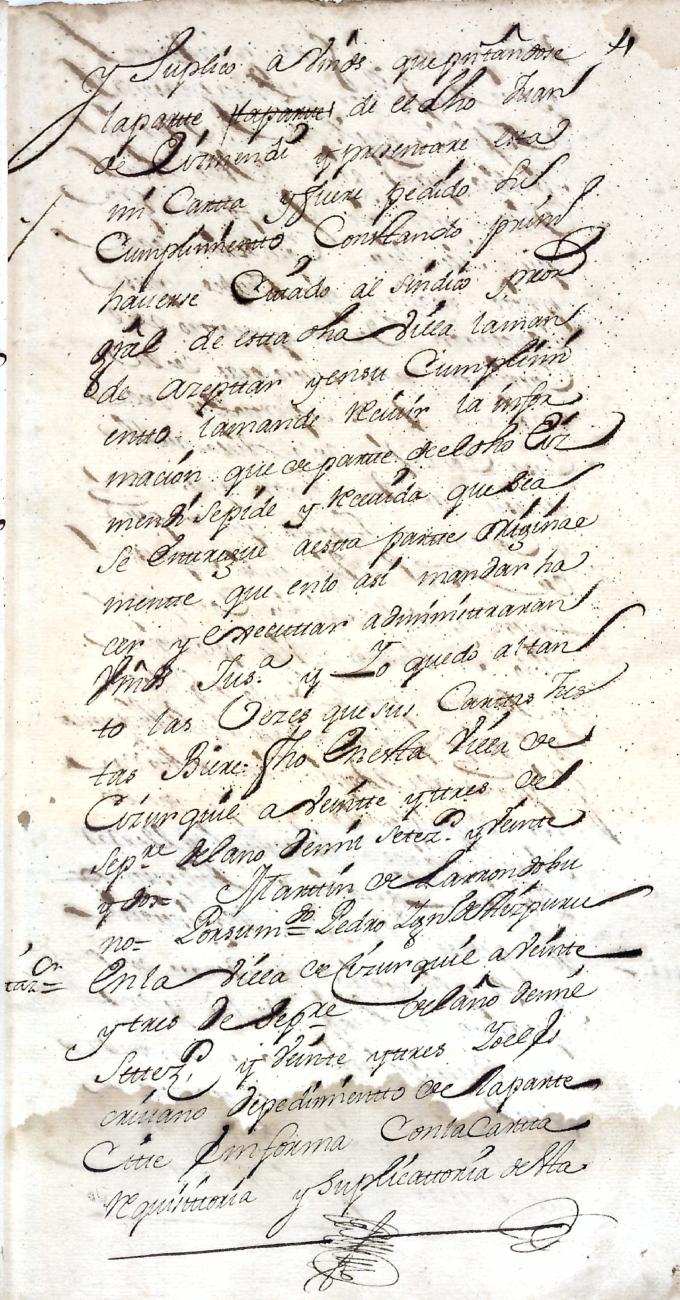 4
y Suplico a Vmds que preͭntandose
laparte laparte de el dho Juan
de Cizmendi y presentare esta
mi Cartta y fuere pedido su
Cumplimientto Constando primo
hauerse Cittado al sindico pror
gral de estta dha Villa laman
de azepttar y ensu Cumplimi
entto lamande reciuir la infor
mación que de partte de el dho Ciz
mendi sepide y Reciuida que sea
Se enttregue aesta partte originae
mentte que enlo asi mandar ha
cer y executtar administraran
Vmds Jus.ª y Yo quedo al tan
to las Vezes que sus Carttas Jus
tas Biere. fho Enestta Villa de
Cizurquil a Veintte yttres de
sepre. del año demil Setezs. y Veintte
y dos= Marttin de Larrondobu
no= Porsumdo.= Pedro Ign de Aizpuru
Cittaz.on=
Enla Villa de Cizurquil a Veintte
y tres de Sepre del año demil
Settez.s y Veintte yttres Yo el es
criuano depedimientto de laparte
Citte en forma Conla Cartta
Requisittoria y suplicattoria de estta